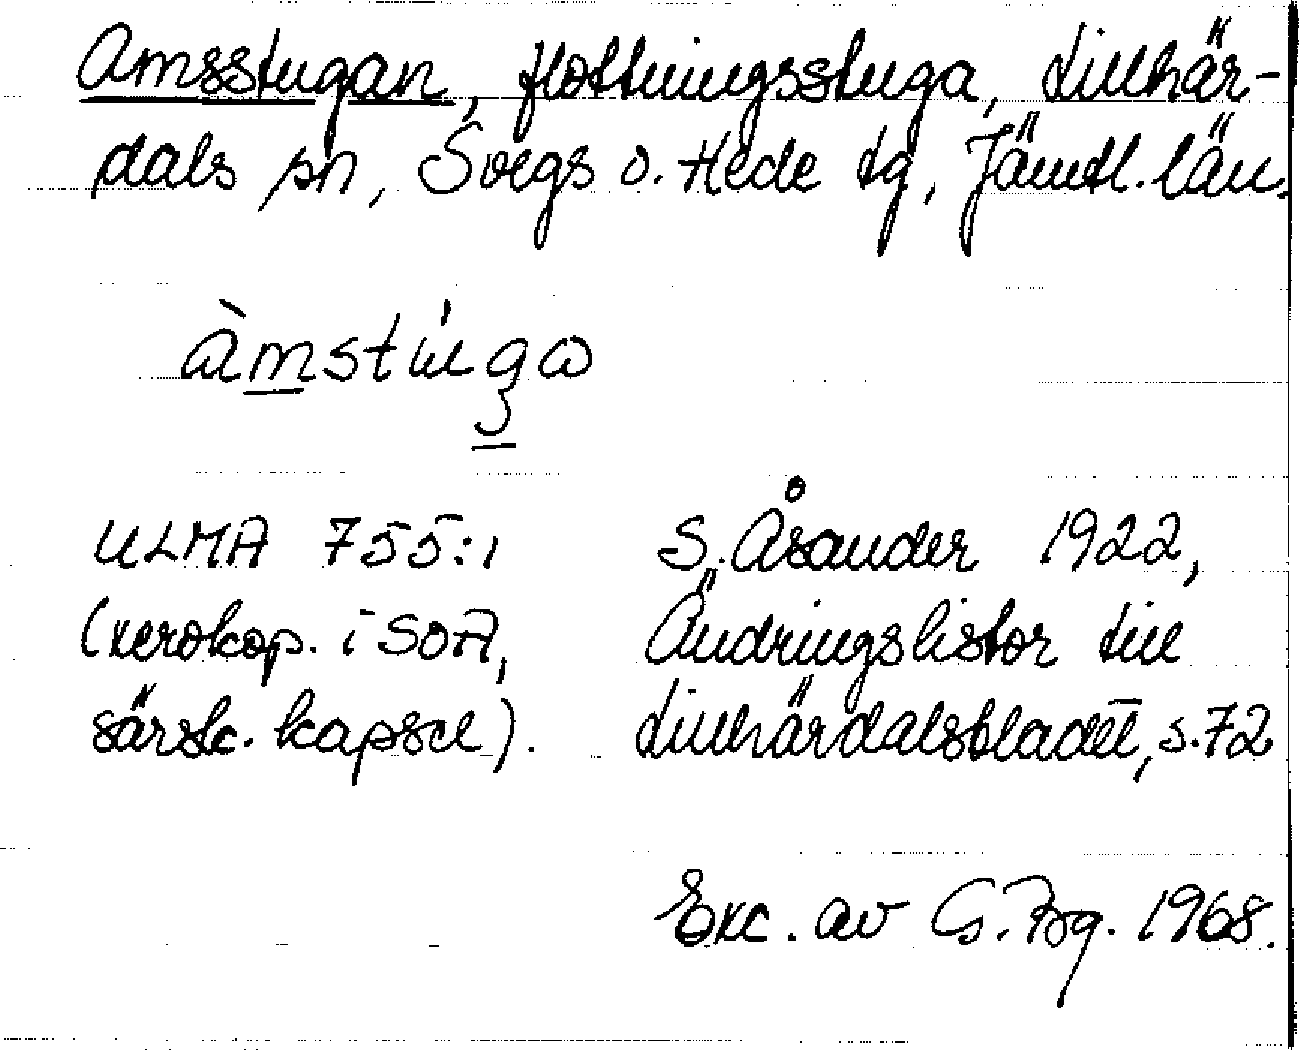 Amsstugan, flottningsstuga, Lillhär-
dals sn, Svegs o. Hede tg, Jämtl. län.
àmstúga
ULMA 755:1
(xerokop. i SOA,
särsk. kapsel).
S. Åsander 1922,
Ändringslistor till
Lillhärdalsbladet, s. 72
Exc. av G. Bg. 1968.